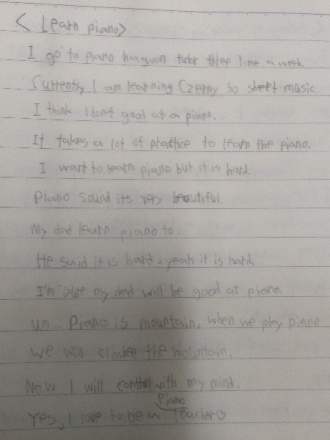 < Learn piano>
I go to piano hagwon take three time a week
Currently I am learning Czerny 30 sheet music
I think I don't good at a piano.
It takes a lot of practice to learn the piano.
I want to learn piano but it is hard.
Piano sound its very beautiful.
My dad learn piano to.
He said it is hard. yeah it is hard
I'm sure my dad will be good at piano
um.. Piano is mountain, when we play piano
we will climb the mountain.
Now I will control with my mind.
Yes, I love to be a piano teacher